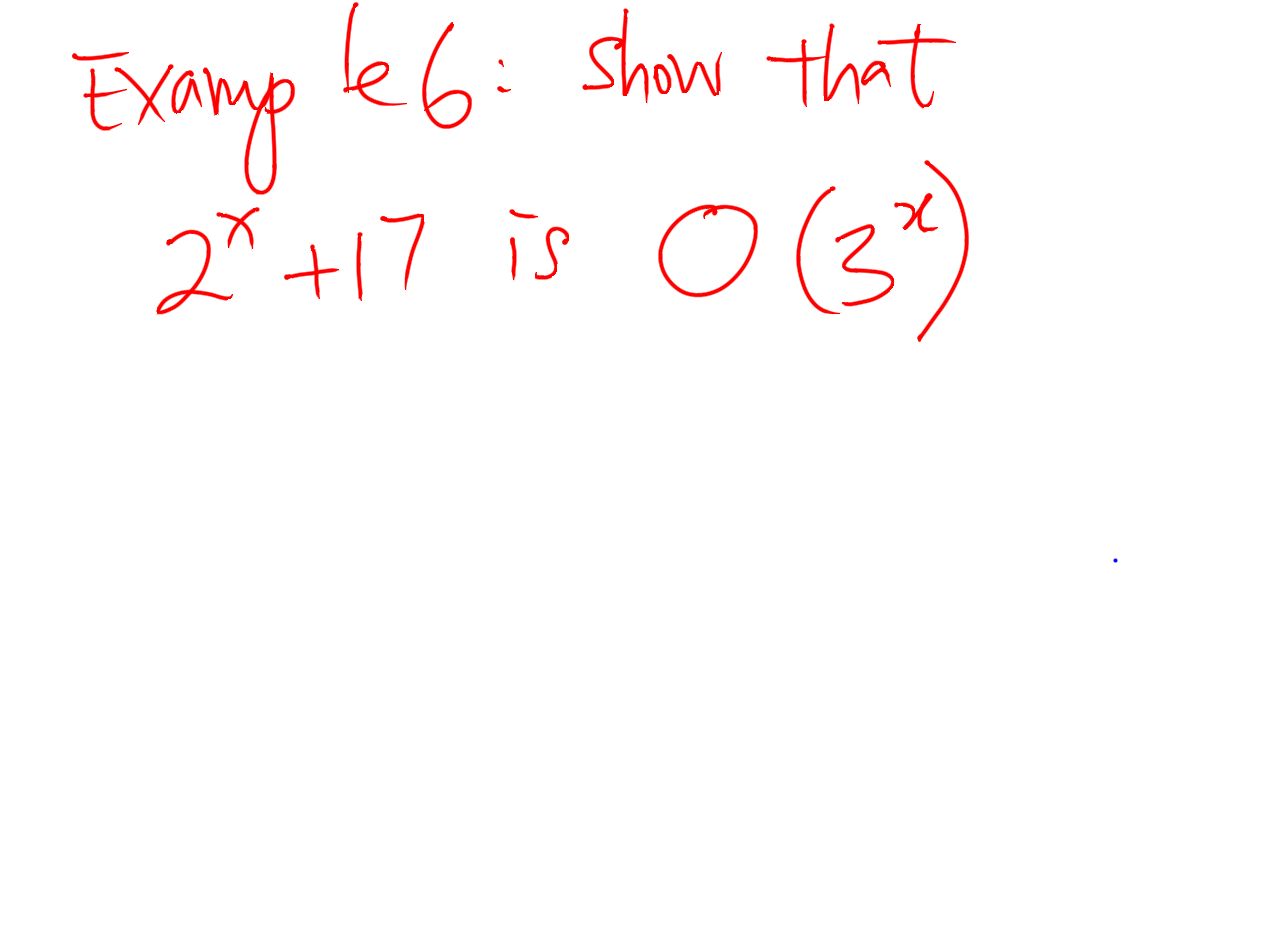 Example 6: show that
2^x + 17 is O(3^x)